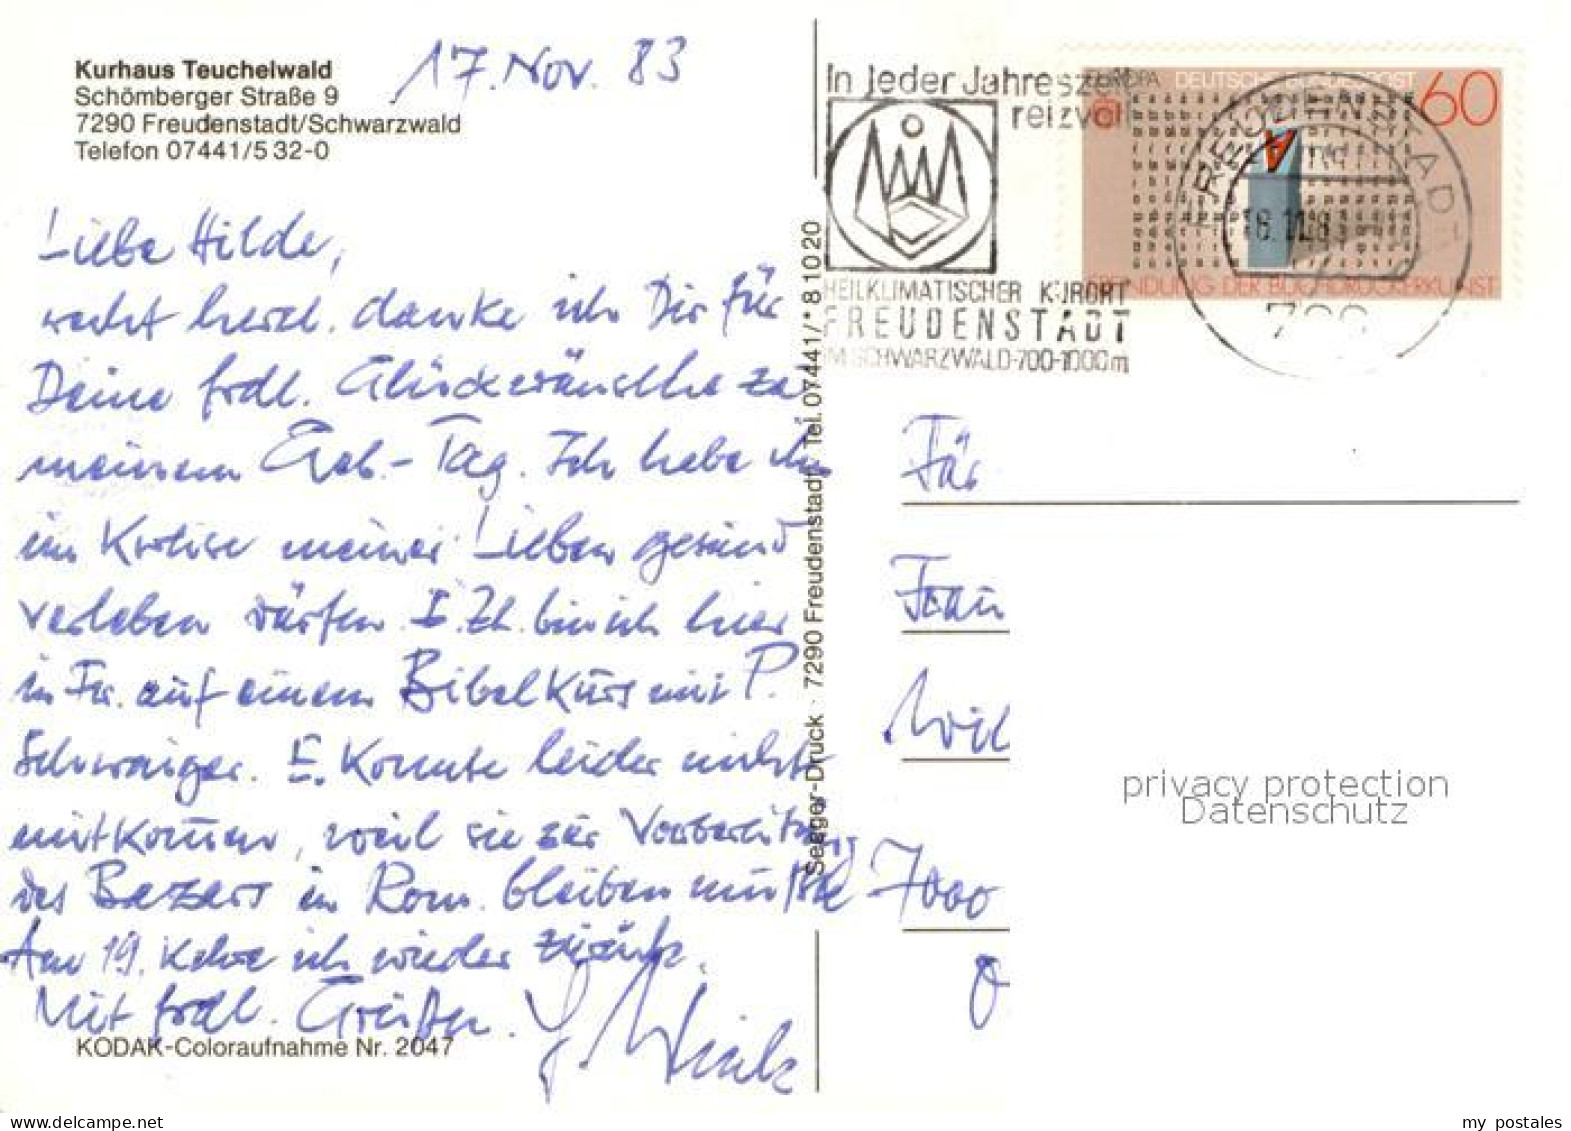 Kurhaus Teuchelwald
Schömberger Straße 9
7290 Freudenstadt/Schwarzwald
Telefon 07441/5 32-0
17. Nov. 83
Liebe Hilde,
recht herzl. danke ich Dir für
Deine frdl. Glückwünsche zu
meinem Geb.-Tag. Ich habe ihn
im Kreise meiner Lieben gesund
verleben dürfen. Z. Zt. bin ich hier
in Fr. auf einem Bibelkurs mit P.
Schwaiger. E. konnte leider nicht
mitkommen, weil sie zur Vorbereitung
des Bazars in Rom. bleiben mußte
Am 19. kehre ich wieder zurück.
Mit frdl. Grüßen.
KODAK-Coloraufnahme Nr. 2047
Seeger-Druck · 7290 Freudenstadt · Tel. 07441/* 8 10 20
In jeder Jahreszeit
reizvoll
HEILKLIMATISCHER KURORT
FREUDENSTADT
IM SCHWARZWALD-700-1000m
EUROPA DEUTSCHE BUNDESPOST 60
A
ERFINDUNG DER BUCHDRUCKERKUNST
FREUDENSTADT
18.11.8
Für
Frau
7000
privacy protection
Datenschutz
my_postales